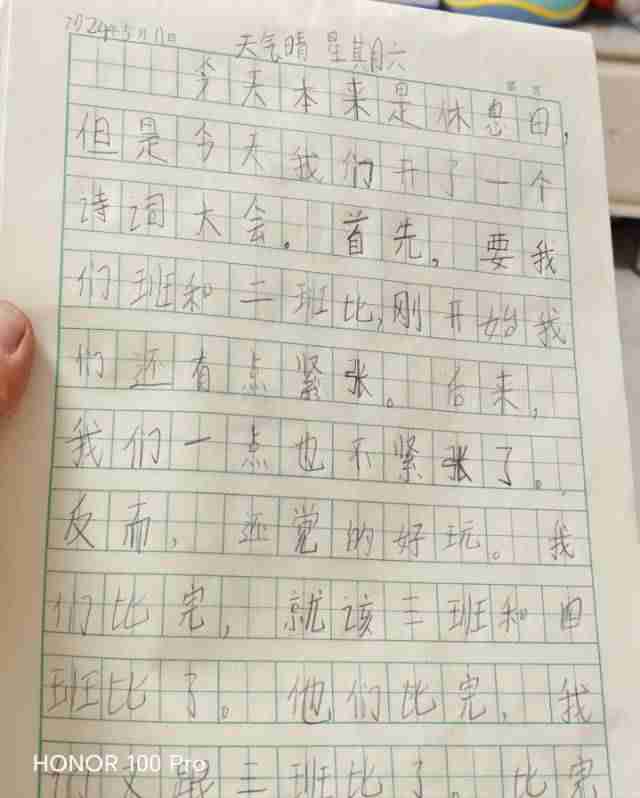 2024年5月11日
天气晴 星期六
今天本来是休息日,
但是今天我们开了一个
诗词大会。首先,要我
们班和二班比,刚开始我
们还有点紧张。后来,
我们一点也不紧张了。
反而,还觉的好玩。我
们比完,就该三班和四
班比了。他们比完,我
们又跟三班比了。比完
HONOR 100 Pro